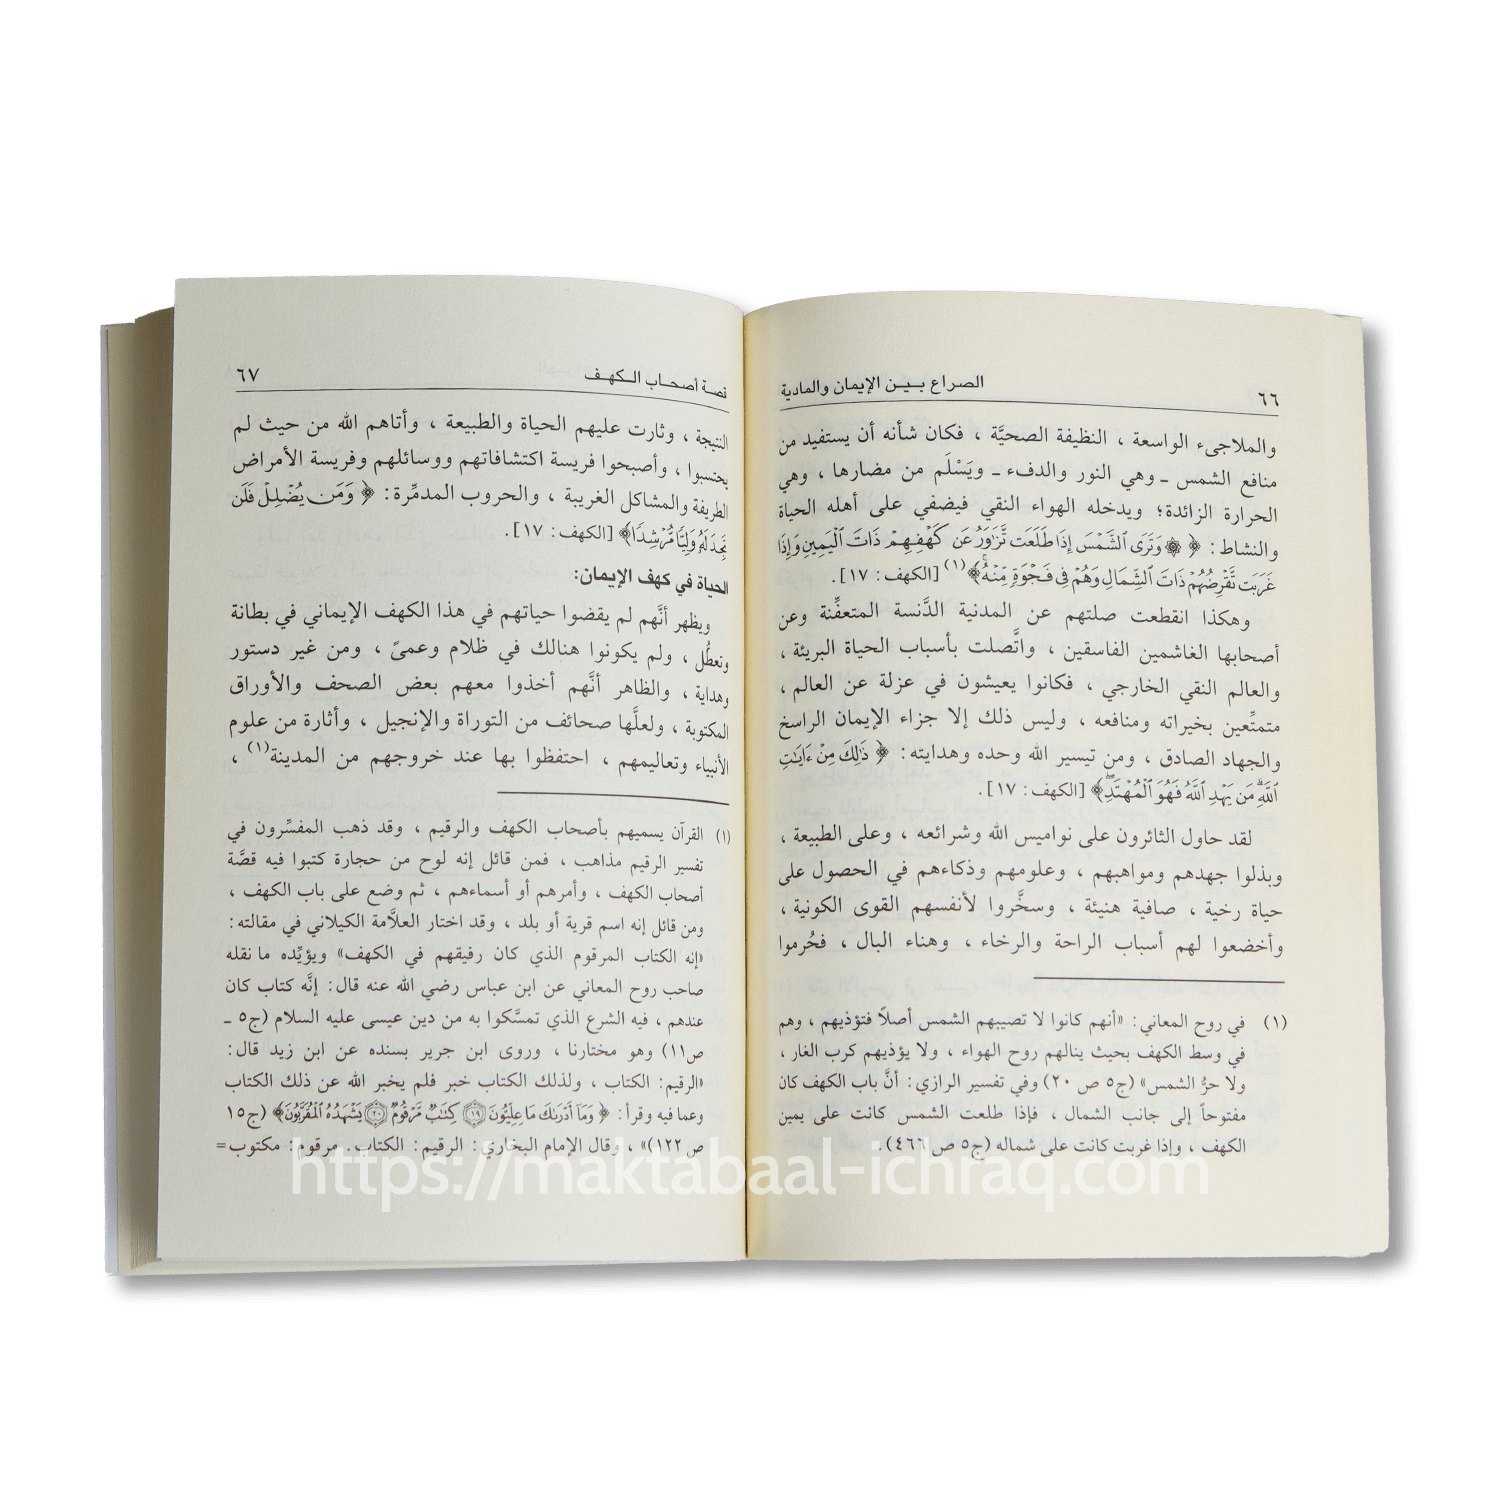 ٦٦
الصراع بين الإيمان والمادية
والملاجىء الواسعة ، النظيفة الصحيَّة ، فكان شأنه أن يستفيد من
منافع الشمس ـ وهي النور والدفء ـ ويَسْلَم من مضارها ، وهي
الحرارة الزائدة؛ ويدخله الهواء النقي فيضفي على أهله الحياة
والنشاط: ﴿ ۞ وَتَرَى ٱلشَّمْسَ إِذَا طَلَعَت تَّزَٰوَرُ عَن كَهْفِهِمْ ذَاتَ ٱلْيَمِينِ وَإِذَا
غَرَبَت تَّقْرِضُهُمْ ذَاتَ ٱلشِّمَالِ وَهُمْ فِى فَجْوَةٍ مِّنْهُ﴾(١) [الكهف: ١٧].
وهكذا انقطعت صلتهم عن المدنية الدَّنسة المتعفِّنة وعن
أصحابها الغاشمين الفاسقين ، واتَّصلت بأسباب الحياة البريئة ،
والعالم النقي الخارجي ، فكانوا يعيشون في عزلة عن العالم ،
متمتِّعين بخيراته ومنافعه ، وليس ذلك إلا جزاء الإيمان الراسخ
والجهاد الصادق ، ومن تيسير الله وحده وهدايته: ﴿ ذَٰلِكَ مِنْ ءَايَٰتِ
ٱللَّهِ مَن يَهْدِ ٱللَّهُ فَهُوَ ٱلْمُهْتَدِ﴾ [الكهف: ١٧].
لقد حاول الثائرون على نواميس الله وشرائعه ، وعلى الطبيعة ،
وبذلوا جهدهم ومواهبهم ، وعلومهم وذكاءهم في الحصول على
حياة رخية ، صافية هنيئة ، وسخَّروا لأنفسهم القوى الكونية ،
وأخضعوا لهم أسباب الراحة والرخاء ، وهناء البال ، فحُرموا
(١) في روح المعاني: «أنهم كانوا لا تصيبهم الشمس أصلاً فتؤذيهم ، وهم
في وسط الكهف بحيث ينالهم روح الهواء ، ولا يؤذيهم كرب الغار ،
ولا حرُّ الشمس» (ج٥ ص ٢٠) وفي تفسير الرازي: أنَّ باب الكهف كان
مفتوحاً إلى جانب الشمال ، فإذا طلعت الشمس كانت على يمين
الكهف ، وإذا غربت كانت على شماله (ج٥ ص ٤٦٦).
قصة أصحاب الكهف
٦٧
النتيجة ، وثارت عليهم الحياة والطبيعة ، وأتاهم الله من حيث لم
يحتسبوا ، وأصبحوا فريسة اكتشافاتهم ووسائلهم وفريسة الأمراض
الطريفة والمشاكل الغريبة ، والحروب المدمِّرة: ﴿ وَمَن يُضْلِلْ فَلَن
تَجِدَ لَهُ وَلِيًّا مُّرْشِدًا﴾ [الكهف: ١٧].
الحياة في كهف الإيمان:
ويظهر أنَّهم لم يقضوا حياتهم في هذا الكهف الإيماني في بطانة
وتعطُّل ، ولم يكونوا هنالك في ظلام وعمىً ، ومن غير دستور
وهداية ، والظاهر أنَّهم أخذوا معهم بعض الصحف والأوراق
المكتوبة ، ولعلَّها صحائف من التوراة والإنجيل ، وأثارة من علوم
الأنبياء وتعاليمهم ، احتفظوا بها عند خروجهم من المدينة(١) ،
(١) القرآن يسميهم بأصحاب الكهف والرقيم ، وقد ذهب المفسِّرون في
تفسير الرقيم مذاهب ، فمن قائل إنه لوح من حجارة كتبوا فيه قصَّة
أصحاب الكهف ، وأمرهم أو أسماءهم ، ثم وضع على باب الكهف ،
ومن قائل إنه اسم قرية أو بلد ، وقد اختار العلاَّمة الكيلاني في مقالته:
«إنه الكتاب المرقوم الذي كان رفيقهم في الكهف» ويؤيِّده ما نقله
صاحب روح المعاني عن ابن عباس رضي الله عنه قال: إنَّه كتاب كان
عندهم ، فيه الشرع الذي تمسَّكوا به من دين عيسى عليه السلام (ج٥ ـ
ص١١) وهو مختارنا ، وروى ابن جرير بسنده عن ابن زيد قال:
«الرقيم: الكتاب ، ولذلك الكتاب خبر فلم يخبر الله عن ذلك الكتاب
وعما فيه وقرأ: ﴿ وَمَآ أَدْرَىٰكَ مَا عِلِّيُّونَ ۝١٩ كِتَٰبٌ مَّرْقُومٌ ۝٢٠ يَشْهَدُهُ ٱلْمُقَرَّبُونَ﴾ (ج١٥
ص١٢٢)» ، وقال الإمام البخاري: الرقيم: الكتاب. مرقوم: مكتوب=
https://maktabaal-ichraq.com